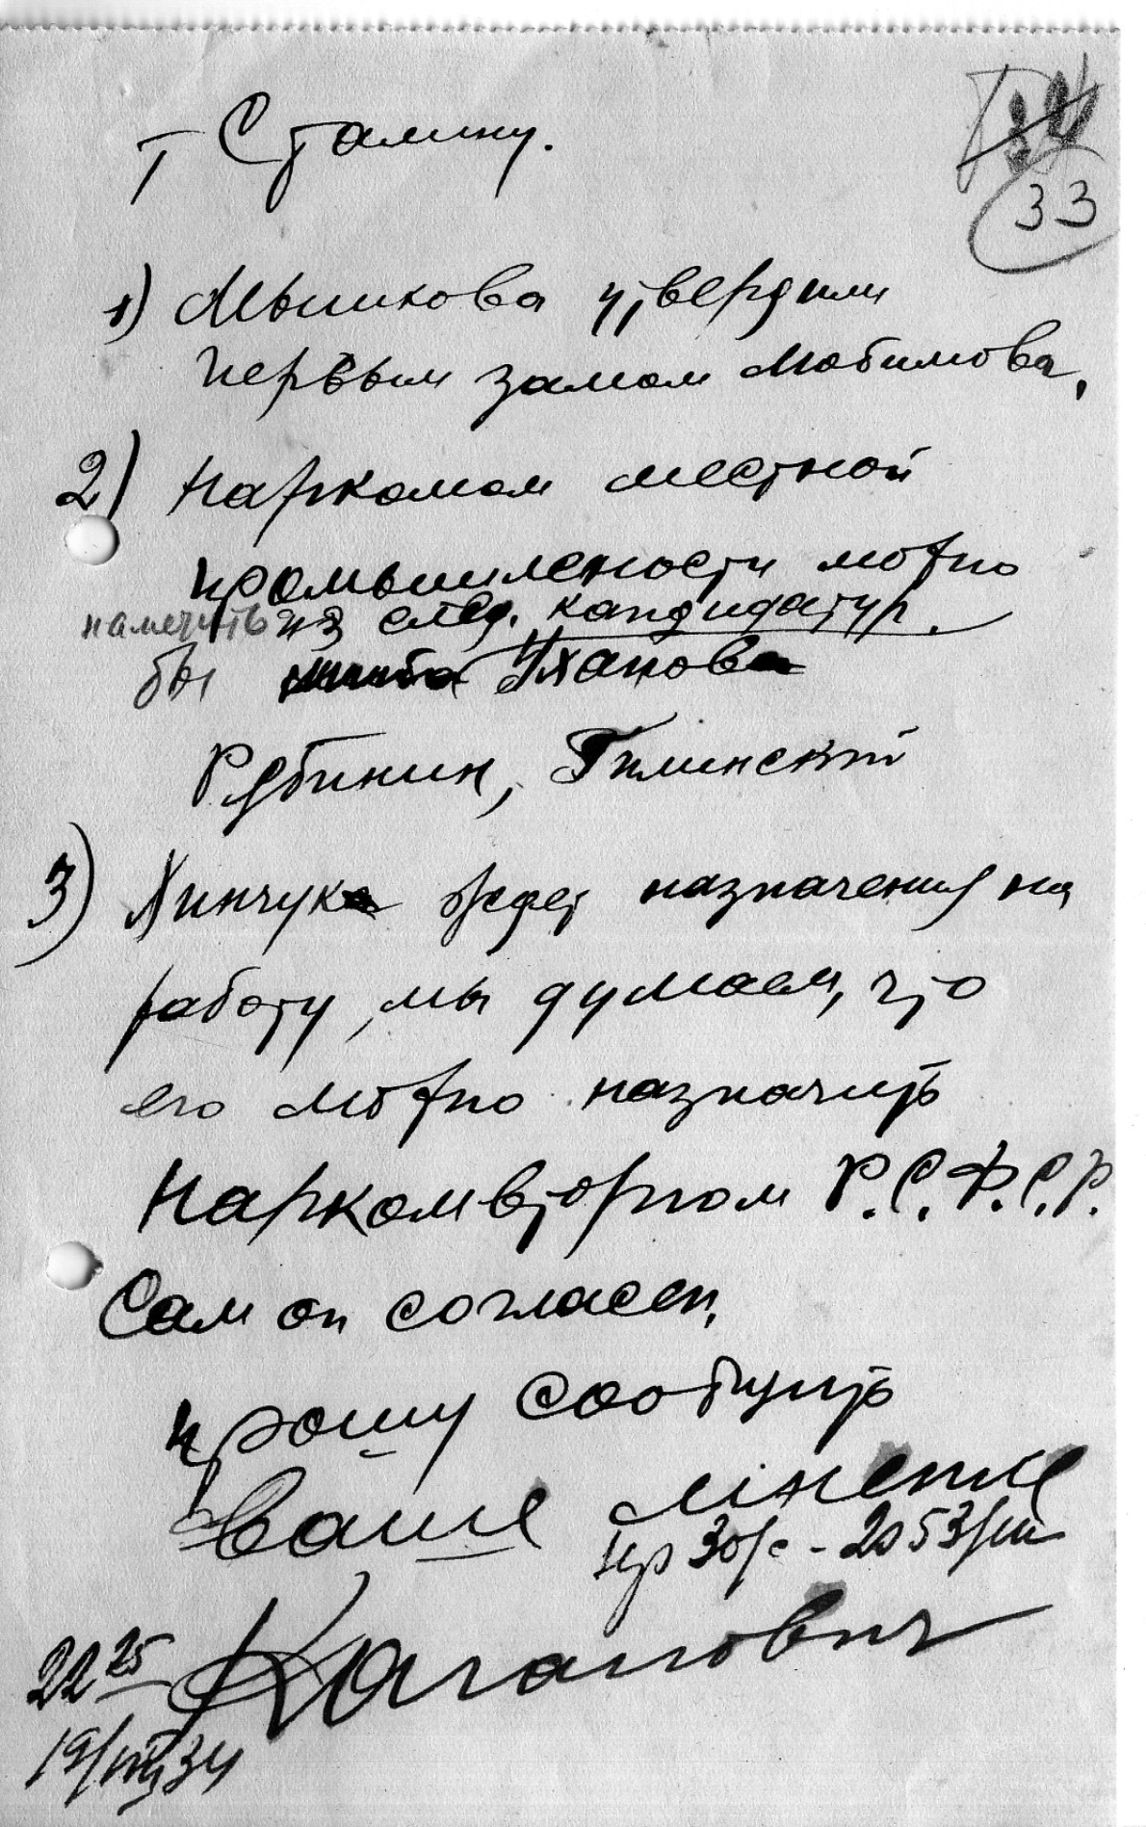 33
Т Сталину.
1) Мышкова утвердили
первым замом Любимова.
2) Наркомом местной
промышлености можно
наметить из след. кандидатур.
бы Уханова
Рябинин, Гилинский
3) Хинчук ждет назначения на
работу, мы думаем, что
его можно назначить
Наркомвторгом Р.С.Ф.С.Р.
Сам он согласен,
прошу сообщить
Ваше мнение
Каганович
22 25
19/VIII 34